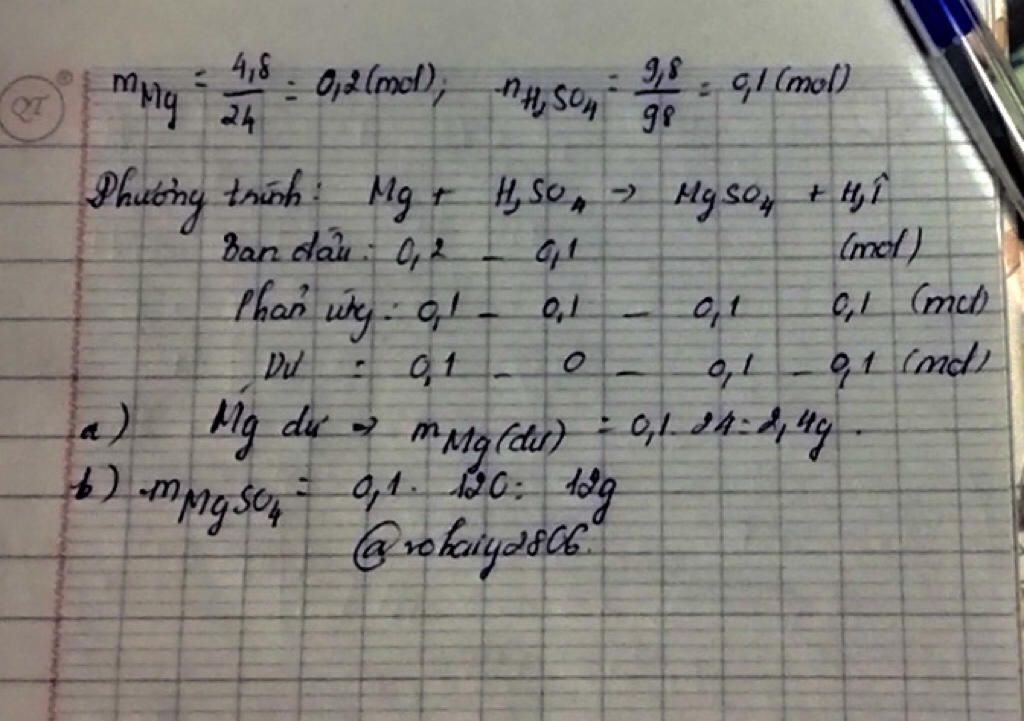 QT
mMg = 4,8/24 = 0,2 (mol); nH₂SO₄ = 9,8/98 = 0,1 (mol)
Phương trình: Mg + H₂SO₄ → MgSO₄ + H₂↑
Ban đầu: 0,2 - 0,1 (mol)
Phản ứng: 0,1 - 0,1 - 0,1 0,1 (mol)
Dư : 0,1 - 0 - 0,1 - 0,1 (mol)
a) Mg dư → mMg(dư) = 0,1. 24 = 2,4g.
b) mMgSO₄ = 0,1. 120 = 12g